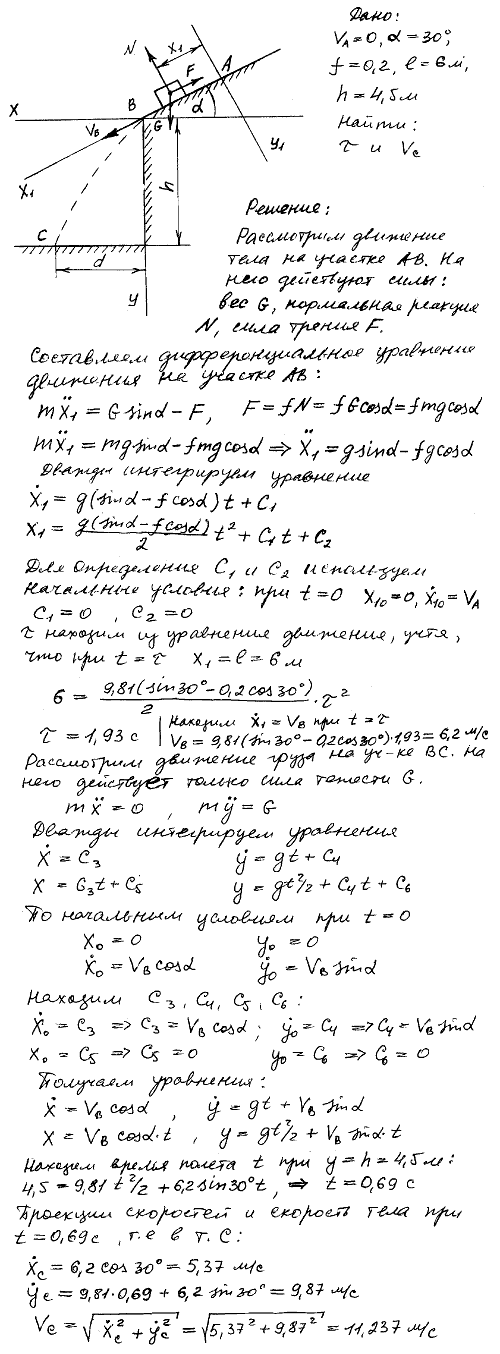 Дано:
V_A=0, α=30°,
f=0,2, ℓ=6м,
h=4,5м
Найти:
τ и V_C
N
X₁
A
F
α
B
G
X
V_B
y₁
X₁
h
C
d
y
Решение:
Рассмотрим движение
тела на участке АВ. На
него действуют силы:
вес G, нормальная реакция
N, сила трения F.
Составляем дифференциальное уравнение
движения на участке АВ:
mẍ₁ = G sinα - F, F = fN = fG cosα = fmg cosα
mẍ₁ = mg sinα - fmg cosα ⇒ ẍ₁ = g sinα - fg cosα
Дважды интегрируем уравнение
ẋ₁ = g(sinα - f cosα)t + C₁
x₁ = g(sinα - f cosα)/2 t² + C₁t + C₂
Для определение C₁ и C₂ используем
начальные условия: при t=0 x₁₀=0, ẋ₁₀=V_A
C₁=0, C₂=0
τ находим из уравнения движение, учтя,
что при t=τ x₁=ℓ=6м
6 = 9,81(sin30°-0,2cos30°)/2 · τ²
τ = 1,93 с | Находим ẋ₁=V_B при t=τ
V_B=9,81(sin30°-0,2cos30°)·1,93=6,2 м/с
Рассмотрим движение груза на уч-ке ВС. На
него действует только сила тяжести G.
mẍ = 0, mÿ = G
Дважды интегрируем уравнения
ẋ = C₃ ẏ = gt + C₄
x = C₃t + C₅ y = gt²/2 + C₄t + C₆
По начальным условием при t=0
x₀ = 0 y₀ = 0
ẋ₀ = V_B cosα ẏ₀ = V_B sinα
Находим C₃, C₄, C₅, C₆:
ẋ₀ = C₃ ⇒ C₃ = V_B cosα; ẏ₀ = C₄ ⇒ C₄ = V_B sinα
x₀ = C₅ ⇒ C₅ = 0 y₀ = C₆ ⇒ C₆ = 0
Получаем уравнения:
ẋ = V_B cosα, ẏ = gt + V_B sinα
x = V_B cosα·t, y = gt²/2 + V_B sinα·t
Находим время полета t при y=h=4,5м:
4,5 = 9,81 t²/2 + 6,2 sin30°t, ⇒ t = 0,69 с
Проекции скоростей и скорость тела при
t=0,69с, т.е в т. С:
ẋ_C = 6,2 cos 30° = 5,37 м/с
ẏ_C = 9,81·0,69 + 6,2 sin30° = 9,87 м/с
V_C = √(ẋ_C² + ẏ_C²) = √(5,37² + 9,87²) = 11,237 м/с